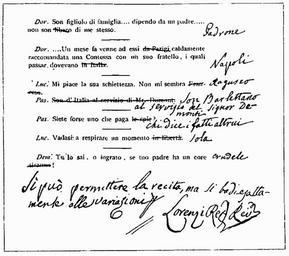 Dor. Son figliolo di famiglia.... dipendo da un padre....
non son libero di me stesso. Padrone
Dor. ....Un mese fa venne ad essi da Parigi caldamente
raccomandata una Contessa con un suo fratello, i quali Napoli
passar dovevano in Italia.
Luc. Mi piace la sua schiettezza. Non mi sembra Raguseo
Pas. Son d'Italia al servizio di Mr. Son Barlettano
al servizio del signor
Pas. Siete forse uno che paga le spie? chi dice i fatti altrui
Luc. Vadasi a respirare un momento in libertà. sola
Don. Tu lo sai, o ingrato, se tuo padre ha un core crudele
Si può permettere la recita, ma si badi esatta-
mente alle variazioni
Lorenzi